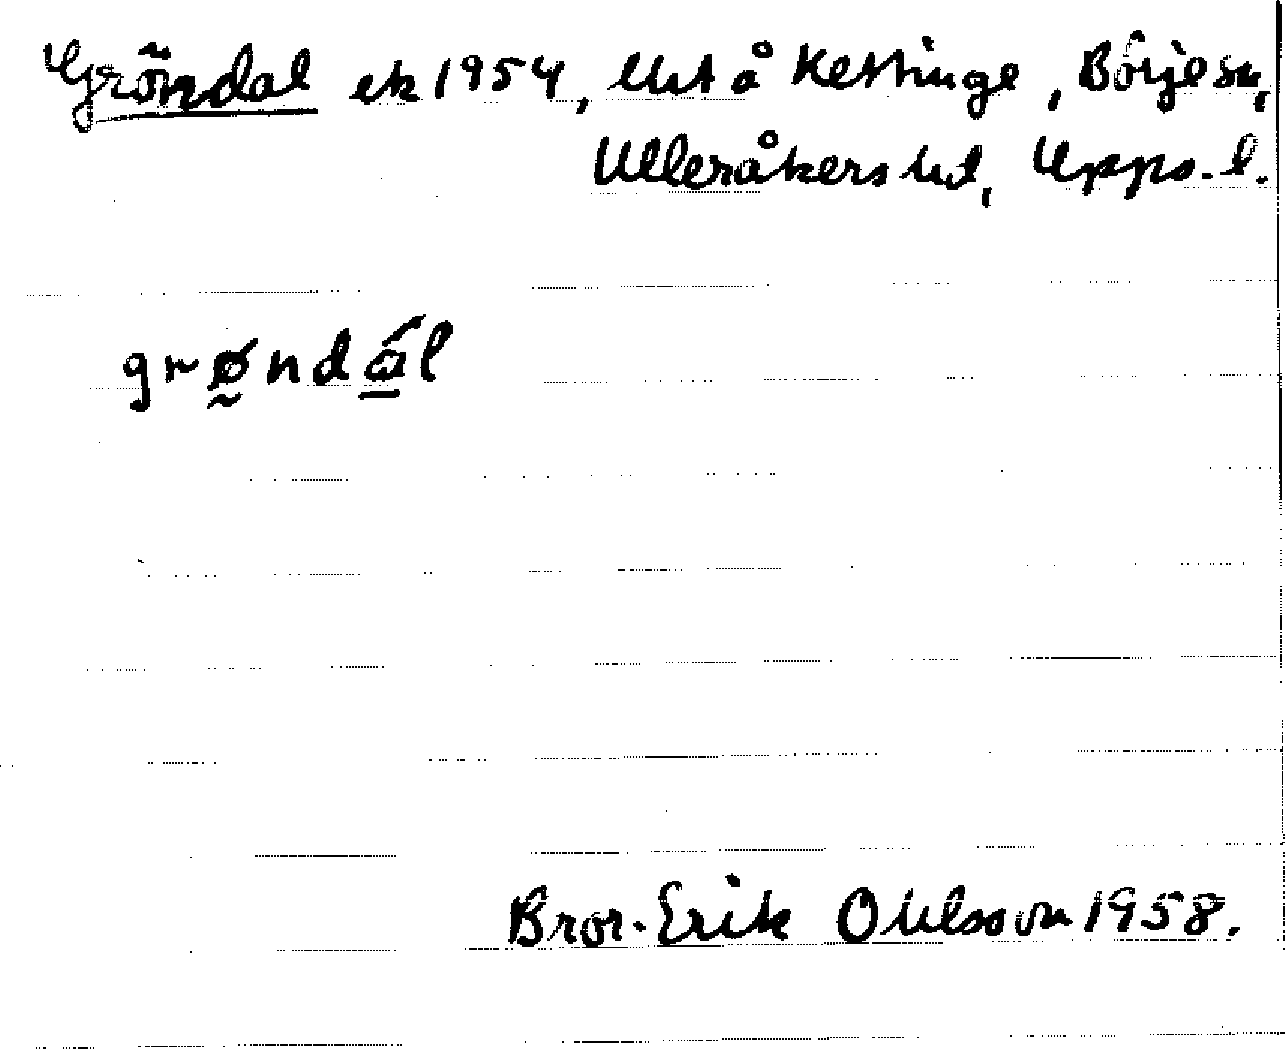 Gröndal ek 1954, Ust å Kettinge, Börje sn,
Ulleråkers hd, Upps. l.
grø̰ndá̱l
Bror-Erik Ohlsson 1958.